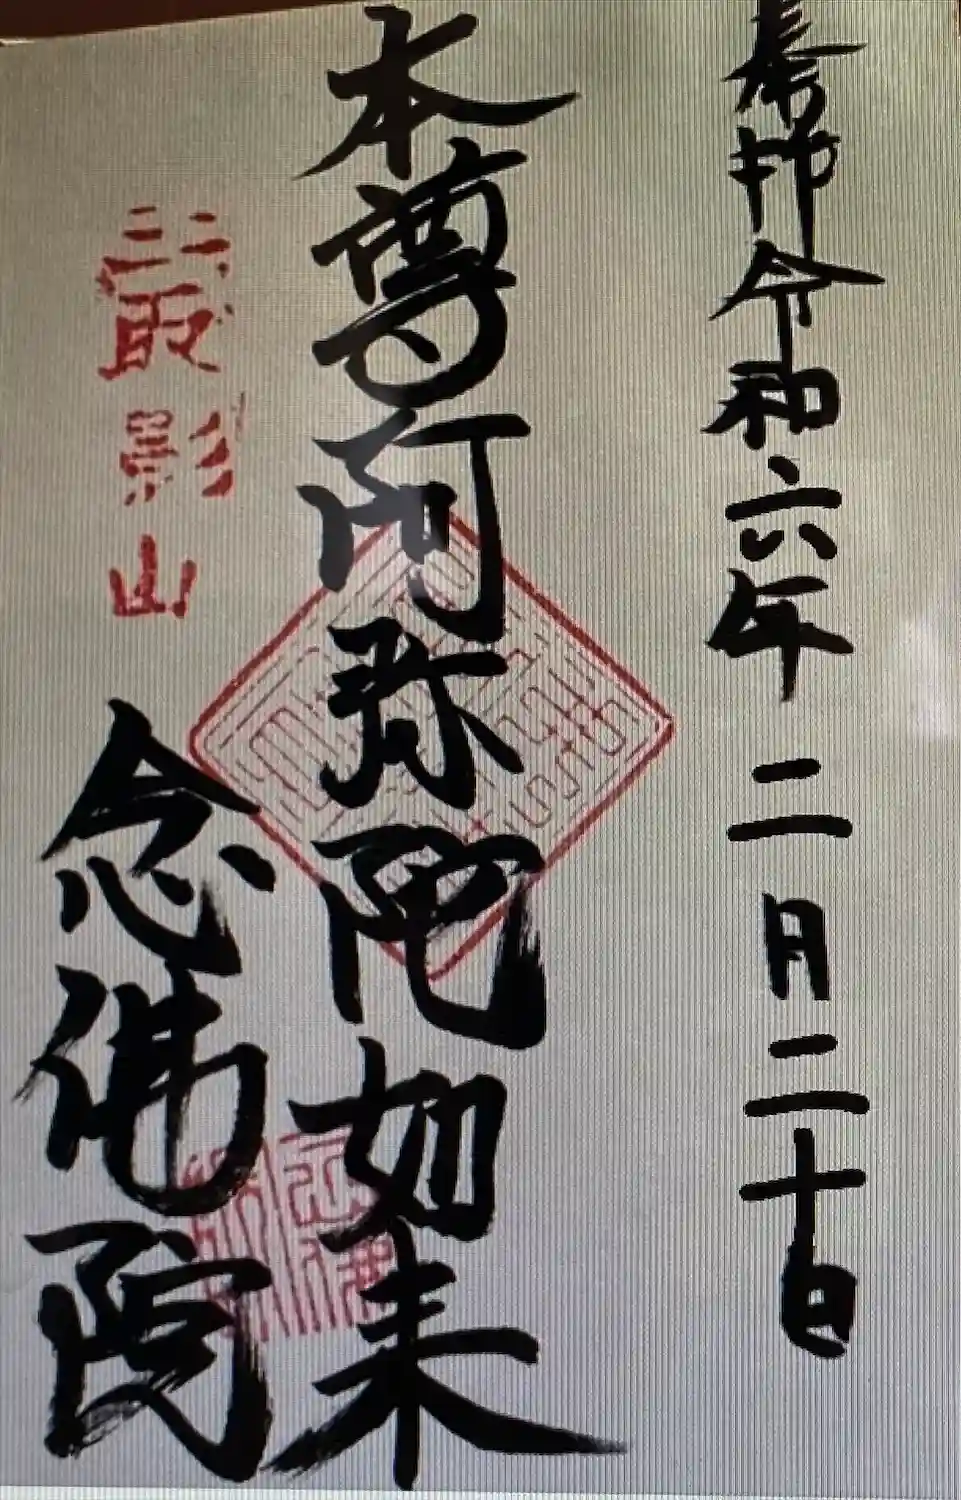 奉拝 令和六年 二月二十日
本尊阿弥陀如来
影山
念佛院